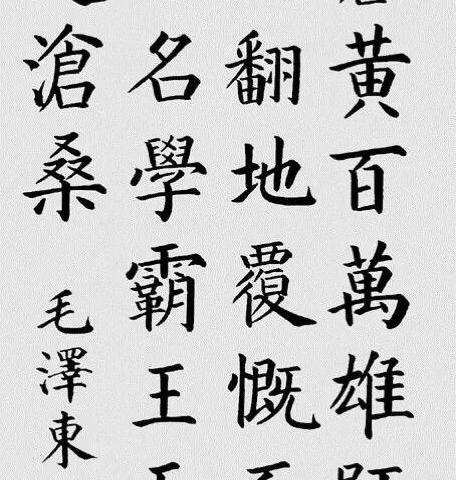 黄百萬雄
翻地覆慨
名學霸王
滄桑
毛澤東